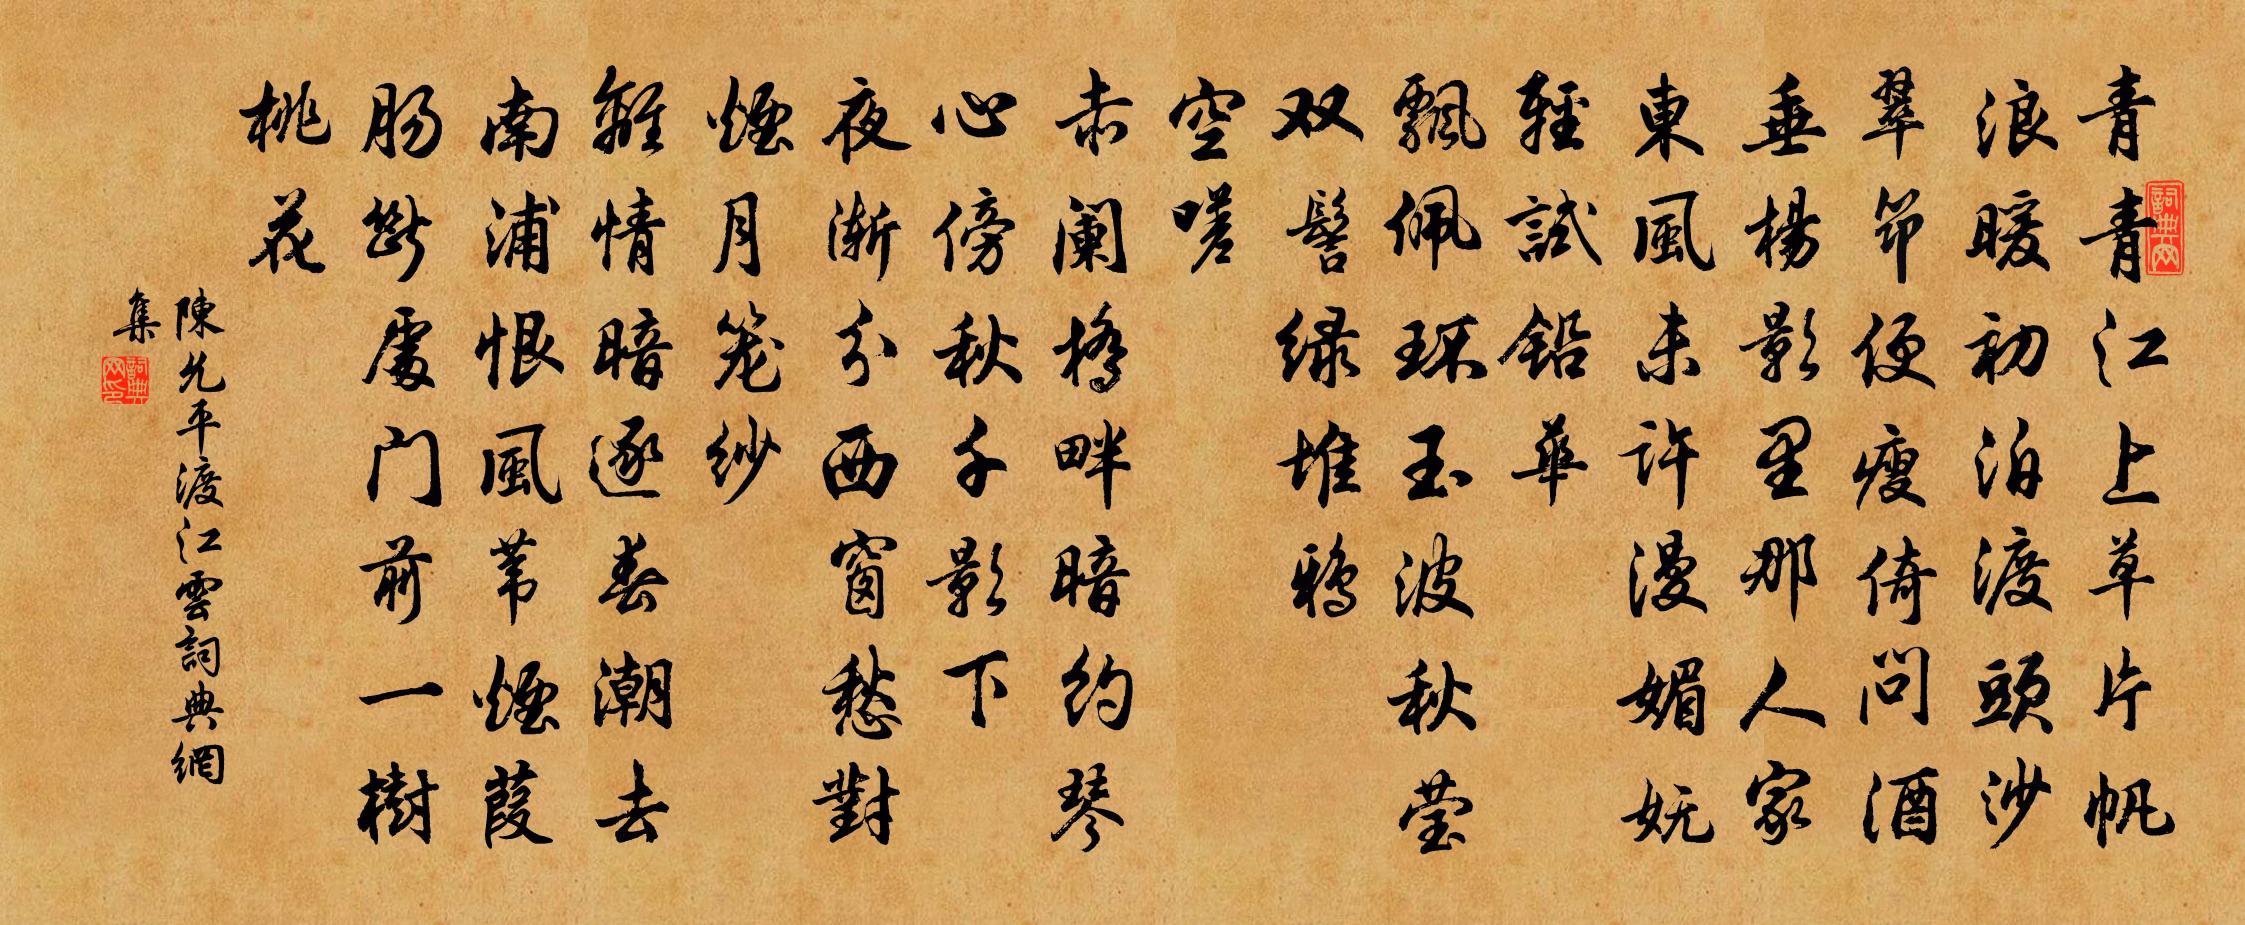 青青江上草片帆
浪暖初泊渡頭沙
翠筇便瘦倚問酒
垂楊影里那人家
東風未許漫媚妩
輕試鉛華
飄佩環玉波秋莹
双髻绿堆鸦
空嗟
赤阑橋畔暗约琴
心傍秋千影下
夜渐分西窗愁對
煙月笼纱
離情暗逐春潮去
南浦恨風苇煙葭
肠斷處门前一樹
桃花
陳允平渡江雲詞典網
集
詞典网
詞典网印